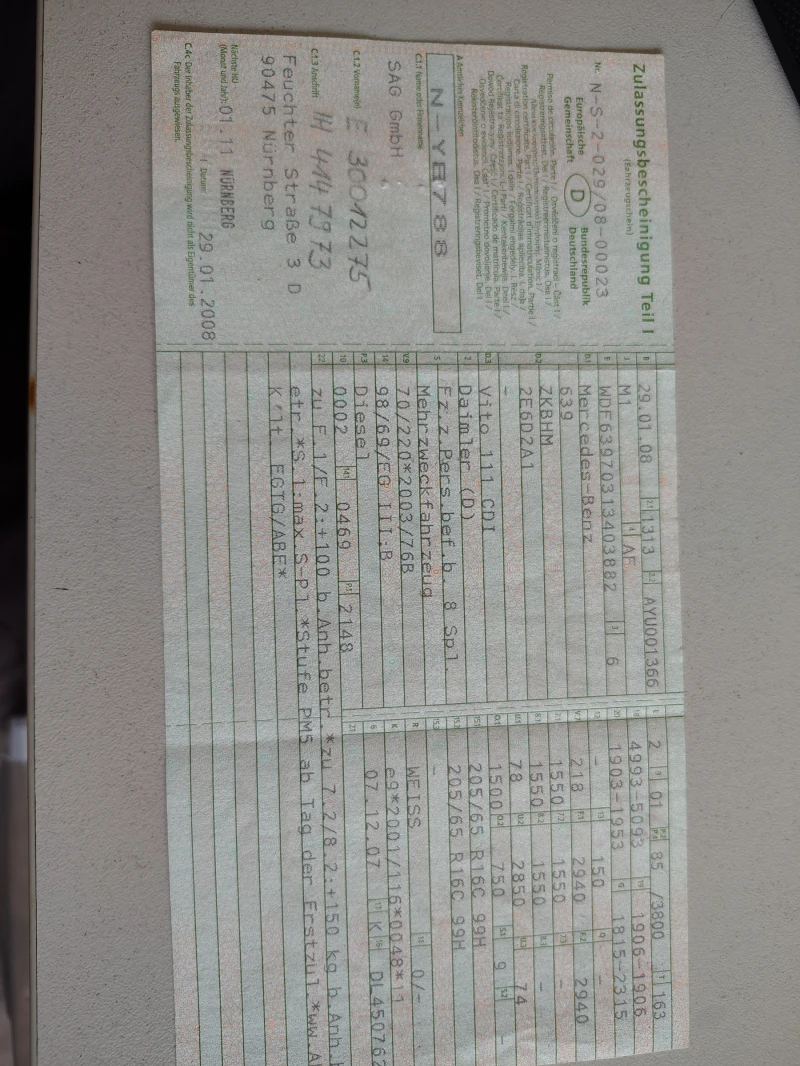 Zulassungsbescheinigung Teil I
(Fahrzeugschein)
Nr. N-S-2-029/08-00023
Europäische Gemeinschaft
D
Bundesrepublik Deutschland
A Amtliches Kennzeichen
N-YB788
C.1.1 Name oder Firmenname
SAG GmbH
C.1.2 Vorname(n)
E 30012275
C.1.3 Anschrift
IH 4147973
Feuchter Straße 3 D
90475 Nürnberg
Nächste HU
(Monat und Jahr):
01.11 NÜRNBERG
Datum:
29.01.2008
C.4c Der Inhaber der Zulassungsbescheinigung wird nicht als Eigentümer des
Fahrzeugs ausgewiesen.
B 29.01.08 2.1 1313 2.2 AYU001366
J M1 4 AF
E WDF63970313403882 3 6
D.1 Mercedes-Benz
639
D.2 ZKBHM
2E6D2A1
-
D.3 Vito 111 CDI
2 Daimler (D)
5 Fz.z.Pers.bef.b. 8 Spl.
Mehrzweckfahrzeug
V.9 70/220*2003/76B
14 98/69/EG III;B
P.3 Diesel
10 0002 14.1 0469 P.1 2148
22 zu F.1/F.2:+100 b.Anh.betr.*zu 7.2/8.2:+150 kg b.Anh.
etr.*S.1:max S-Pl.*Stufe PM5 ab Tag der Erstzul.*ww.
EGTG/ABE*
L 2 9 01 P.2 P.4 85 /3800 T 163
18 4993-5093 19 1906-1906
20 1903-1953 G 1815-2315
12 - 13 150 Q -
V.7 218 F.1 2940 F.2 2940
7.1 1550 7.2 1550 7.3 -
8.1 1550 8.2 1550 8.3 -
U.1 78 U.2 2850 U.3 74
O.1 1500 O.2 750 S.1 9 S.2 -
15.1 205/65 R16C 99H
15.2 205/65 R16C 99H
15.3 -
R WEISS 11 0/-
K e9*2001/116*0048*11
6 07.12.07 17 K 16 DL450762
21